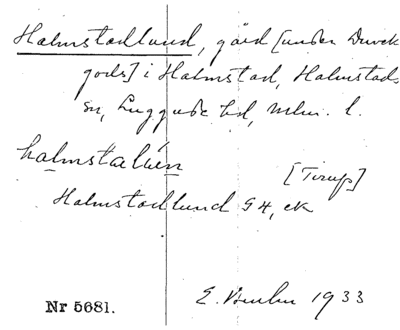 Halmstadlund, gård [under Duveke
gods] i Halmstad, Halmstads
sn, Luggude hd, Mlm. l.
halmstalún
[Tirup]
Halmstadlund G4, ek
Nr 5681.
E. 1933